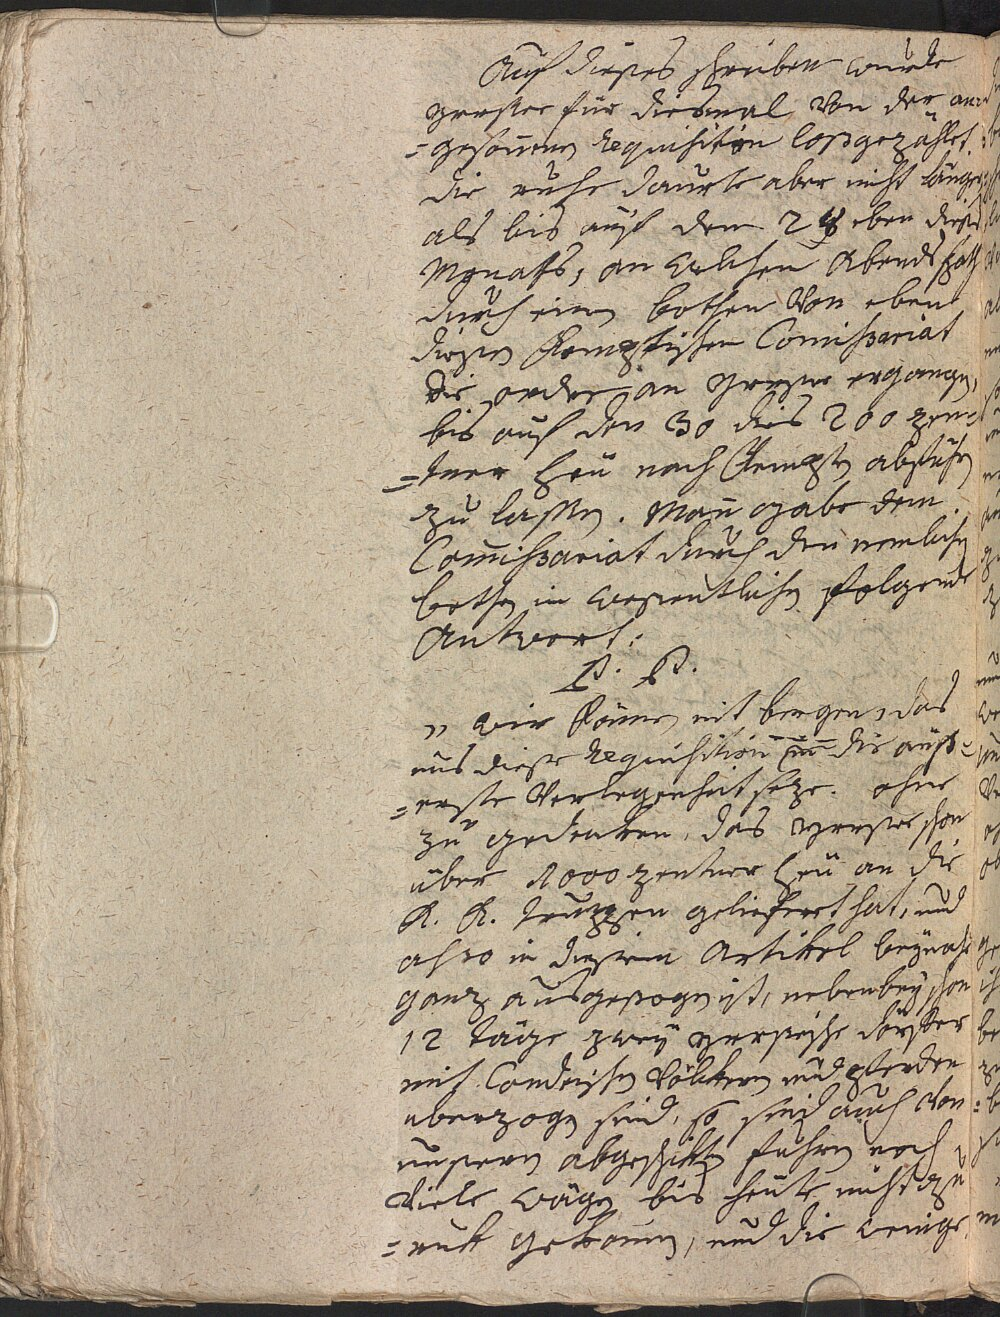 Auf dieses schreiben wurde
für diesmal von der an-
=gesonnenen Requisition loßgezählt.
die ruhe daurte aber nicht länger
als bis auf den 28 eben dieses
Monats, an welchem Abends spath
durch einen bothen von eben
diesem Kemptischen Comißariat
die ordre an ergangen,
bis auf den 30 dies 200 zent-
=tner heu nach Kempten abführen
zu lassen. Man gabe dem
Commißariat durch den nemlichen
bothen in wesentlichen folgende
Antwort:
P. P.
„ wir können nit bergen, das
uns diese Requisition in die äuß-
=erste Verlegenheit seze. ohne
zu gedenken, das schon
über 1000 zentner heu an die
K. K. truppen geliefert hat, und
also in diesem Artikel beynahe
ganz ausgesogen ist, nebenbey schon
12 täge zwey dörffer
mit Condeischen Völkern und pferden
uberzogen sind, so sind auch von
unsern abgeschikten fuhren noch
viele wägen bis heute nicht zu
=ruk gekomen, und die wenige